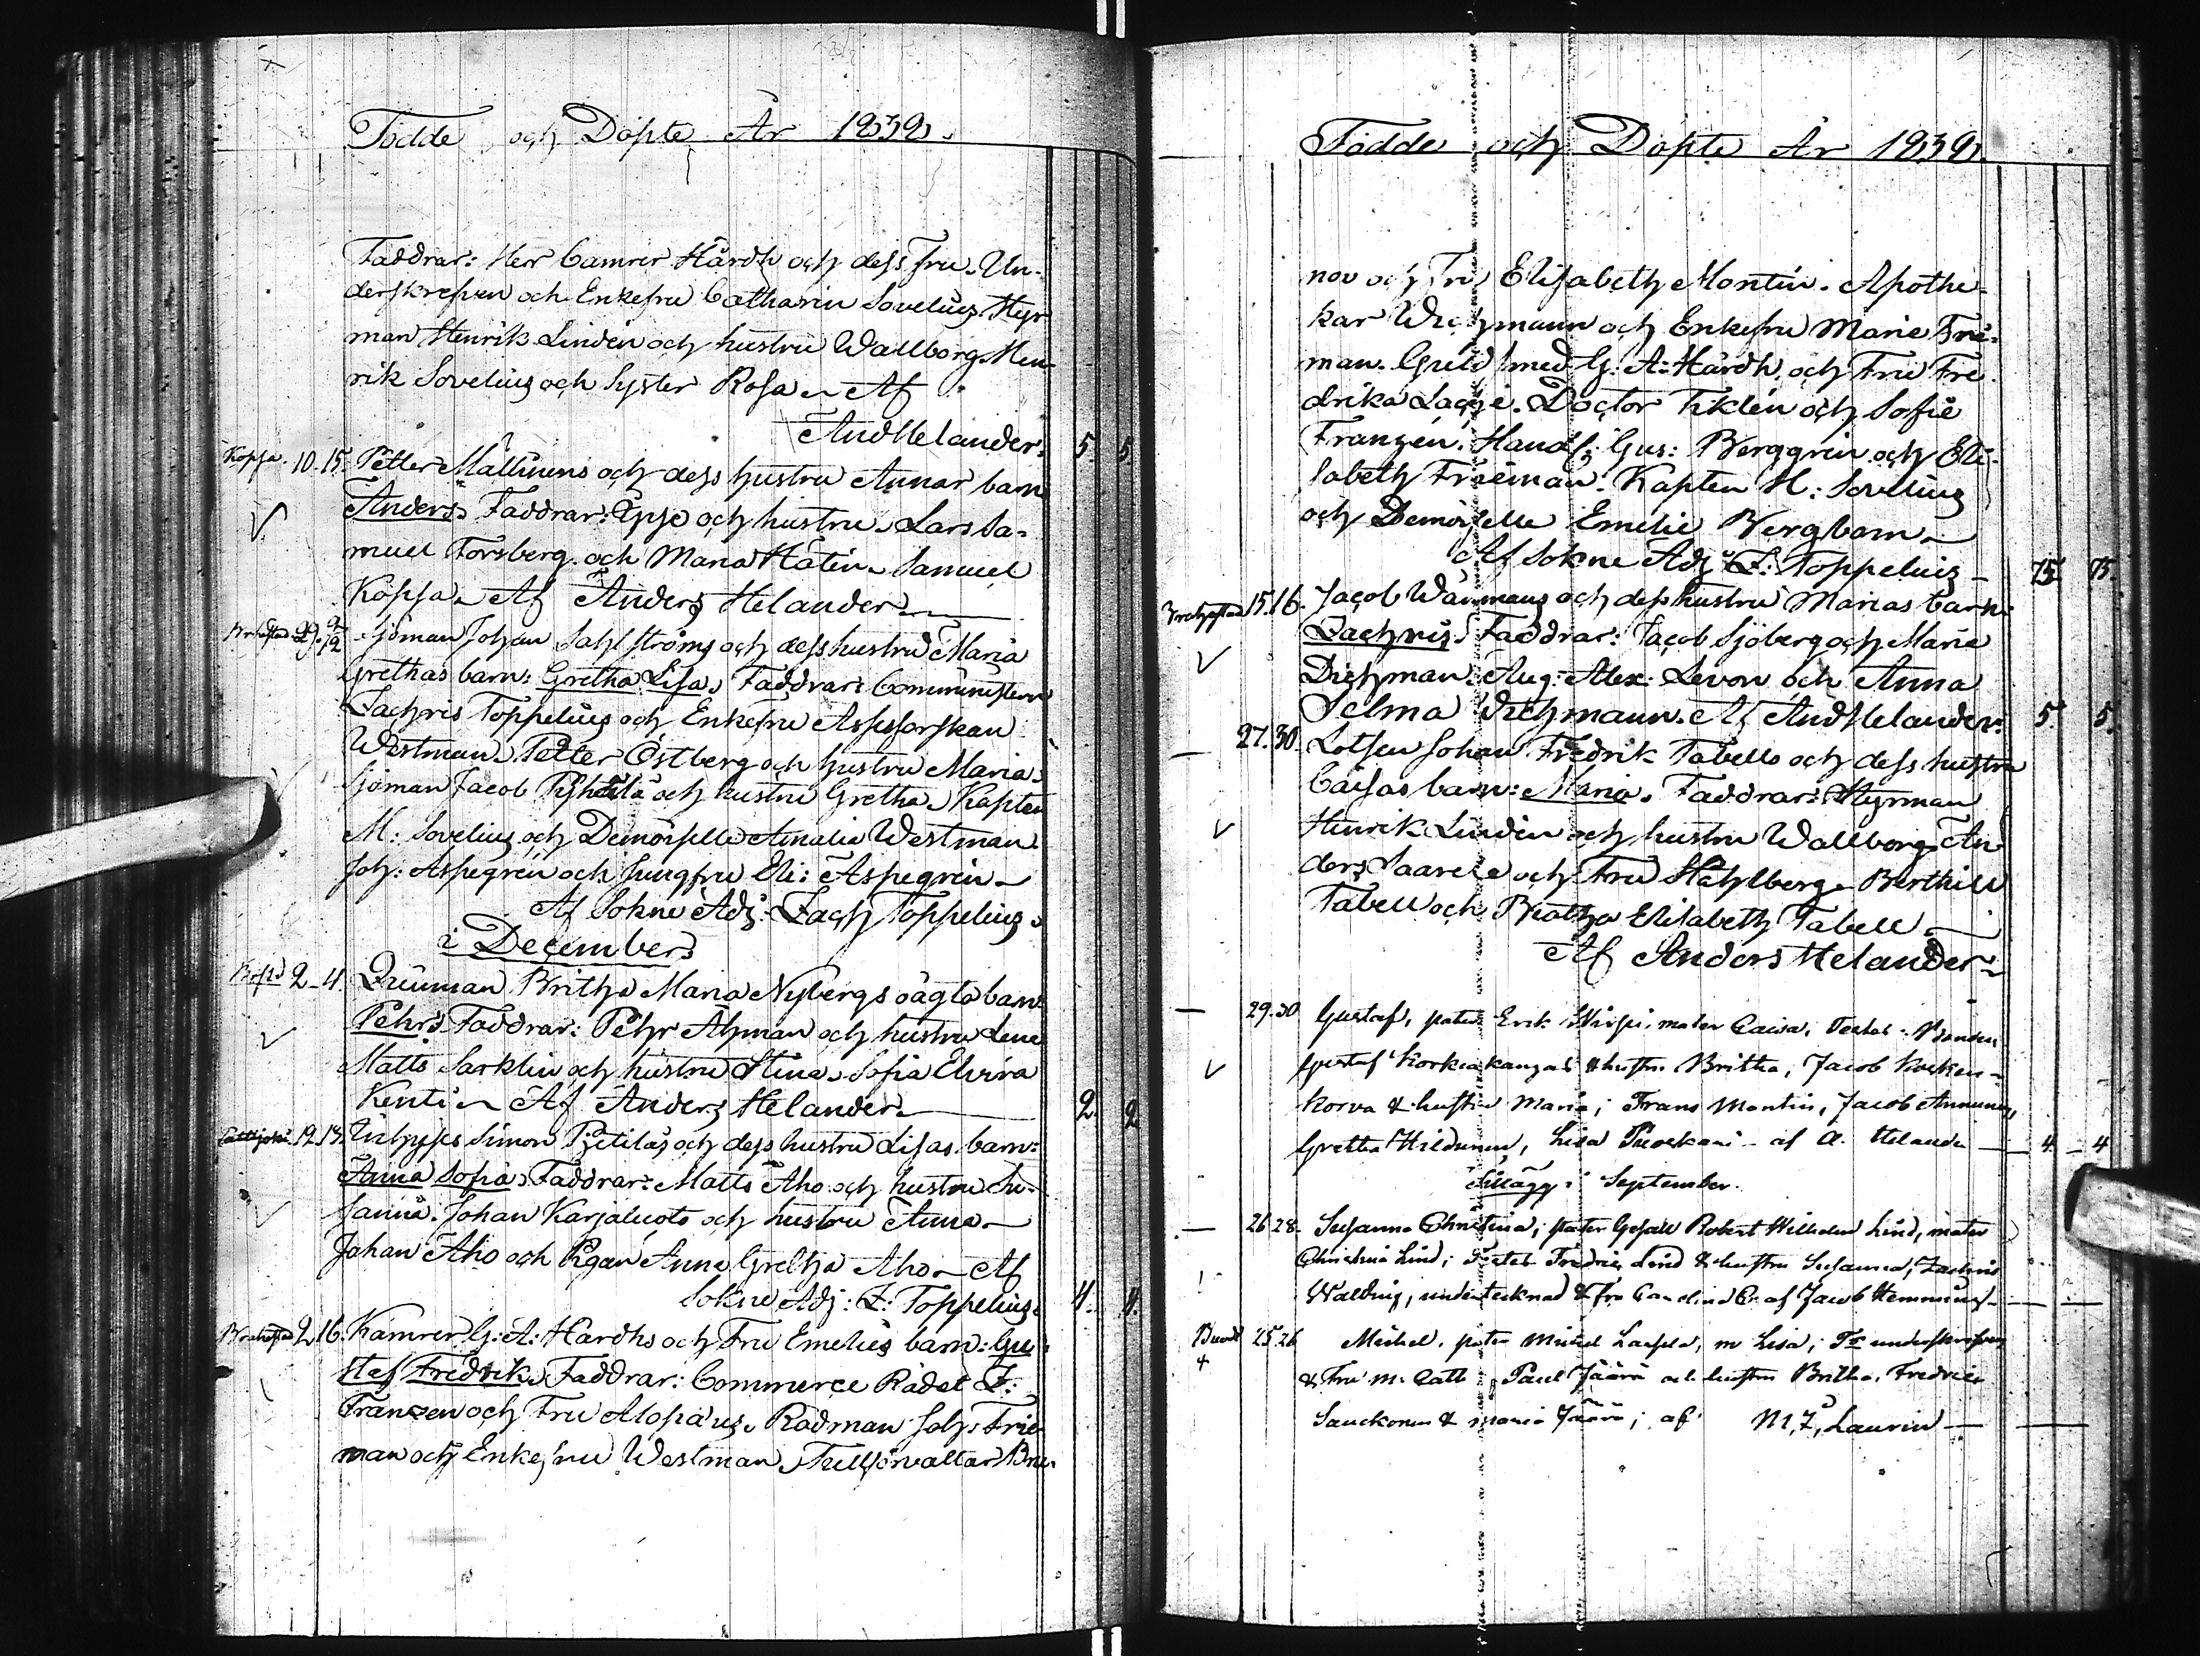 Födde och Döpte År 1839.
Faddrar: Herr Camrer Hårdh och dess Fru. Un-
derskrefven och Enkefru Catharin Sovelius. Styr
man Henrik Lindén och hustru Wallborg. Hen-
rik Sovelius och Syster Rosa. Af
And Helander. 5. 5.
Kopsa. 10. 15. Petter Mällinens och dess hustru Annas barn
Anders. Faddrar: och hustru. Lars Sa-
muel Forsberg och Maria Håtén. Samuel
Kopsa. Af Anders Helander
Sjöman Johan Sahlströms och dess hustru Maria
Grethas barn: Gretha Lisa. Faddrar: Comministern
Zachris Toppelius och Enkefru Assessorskan
Westman. Petter Östberg och hustru Maria.
Sjöman Jacob och hustru Gretha. Kapten
M: Sovelius och Demoiselle Amalia Westman.
Joh: Aspegrén och Jungfru Eli: Aspegrén
Af Sokne Adj. Zach Toppelius.
i December.
Brhstd 2 4. Qvinnan Britha Maria Nybergs oägta barn
Pehr. Faddrar: Pehr Åhman och hustru Lena
Matts Sarklin och hustru Stina. Sofia Elvira
Kenti. Af Anders Helander 2. 2
12. 13. Simon Pietiläs och dess hustru Lisas barn:
Anna Sofia. Faddrar: Matts Aho och hustru Su-
sanna. Johan Karjaluoto och hustru Anna
Johan Aho och Pigan Anna Gretha Aho. Af
Sokne Adj: Z: Toppelius. 4. 4.
Brahestad 2 16. Kamrer G: A: Hårdhs och Fru Emelies barn: Gu-
staf Fredrik. Faddrar: Commerce Rådet Z:
Franzen och Fru Alopæus. Rådman Joh: Frie-
man och Enkefru Westman. Tullförvaltar Bru-
Födde och Döpte År 1839.
nov och Fru Elisabeth Montin. Apothe-
kar Wichmann och Enkefru Marie Frie-
man. Guld Smed G: A: Hårdh och Fru Fre
drika Lackje. Doctor Ticklén och Sofie
Franzén. Handl: Gus: Berggrén och Eli-
sabeth Frieman. Kapten H: Sovelius
och Demoiselle Emelie Bergbom
Af Sokne Adj Z: Toppelius 75. 75.
Brahestad 15. 16. Jacob Wärmans och dess hustru Marias barn:
Zachris. Faddrar: Jacob Sjöberg och Maria
Dichman. Aug: Alex: Levon och Anna
Selma Dichmann. Af And Helander 5. 5.
27. 30. Lotsen Johan Fredrik Tabells och dess hustru
Caisas barn: Maria. Faddrar: Styrman
Henrik Lindén och hustru Wallborg. An-
ders Saarela och Fru Ståhlberg. Berthill
Tabell och Beatha Elisabeth Tabell
Af Anders Helander
29. 30 Gustaf, pater Erik mater Caisa, Testes: Bonden
Gustaf Korkiakangas & hustru Britha, Jacob Kosken-
korva & hustru Maria; Frans Montin, Jacob
Gretha Hildunen, Lisa af A. Helander 4. 4
Tillägg i September.
26. 28. Susanna Christina; pater Gesäll Robert Wilhelm Lind, mater
Christina Lind; Testes Fredric Lind & hustru Susanna; Zachris
Walding, undertecknad & fru Carolina Er. af Jacob Hemming
25. 26 Michel. pater Michel m Lisa; undersk
& Fru M. Cath Paul Jäärä och hustru Britha. Fredric
& Maria Jäärä; af M. Z. Laurin